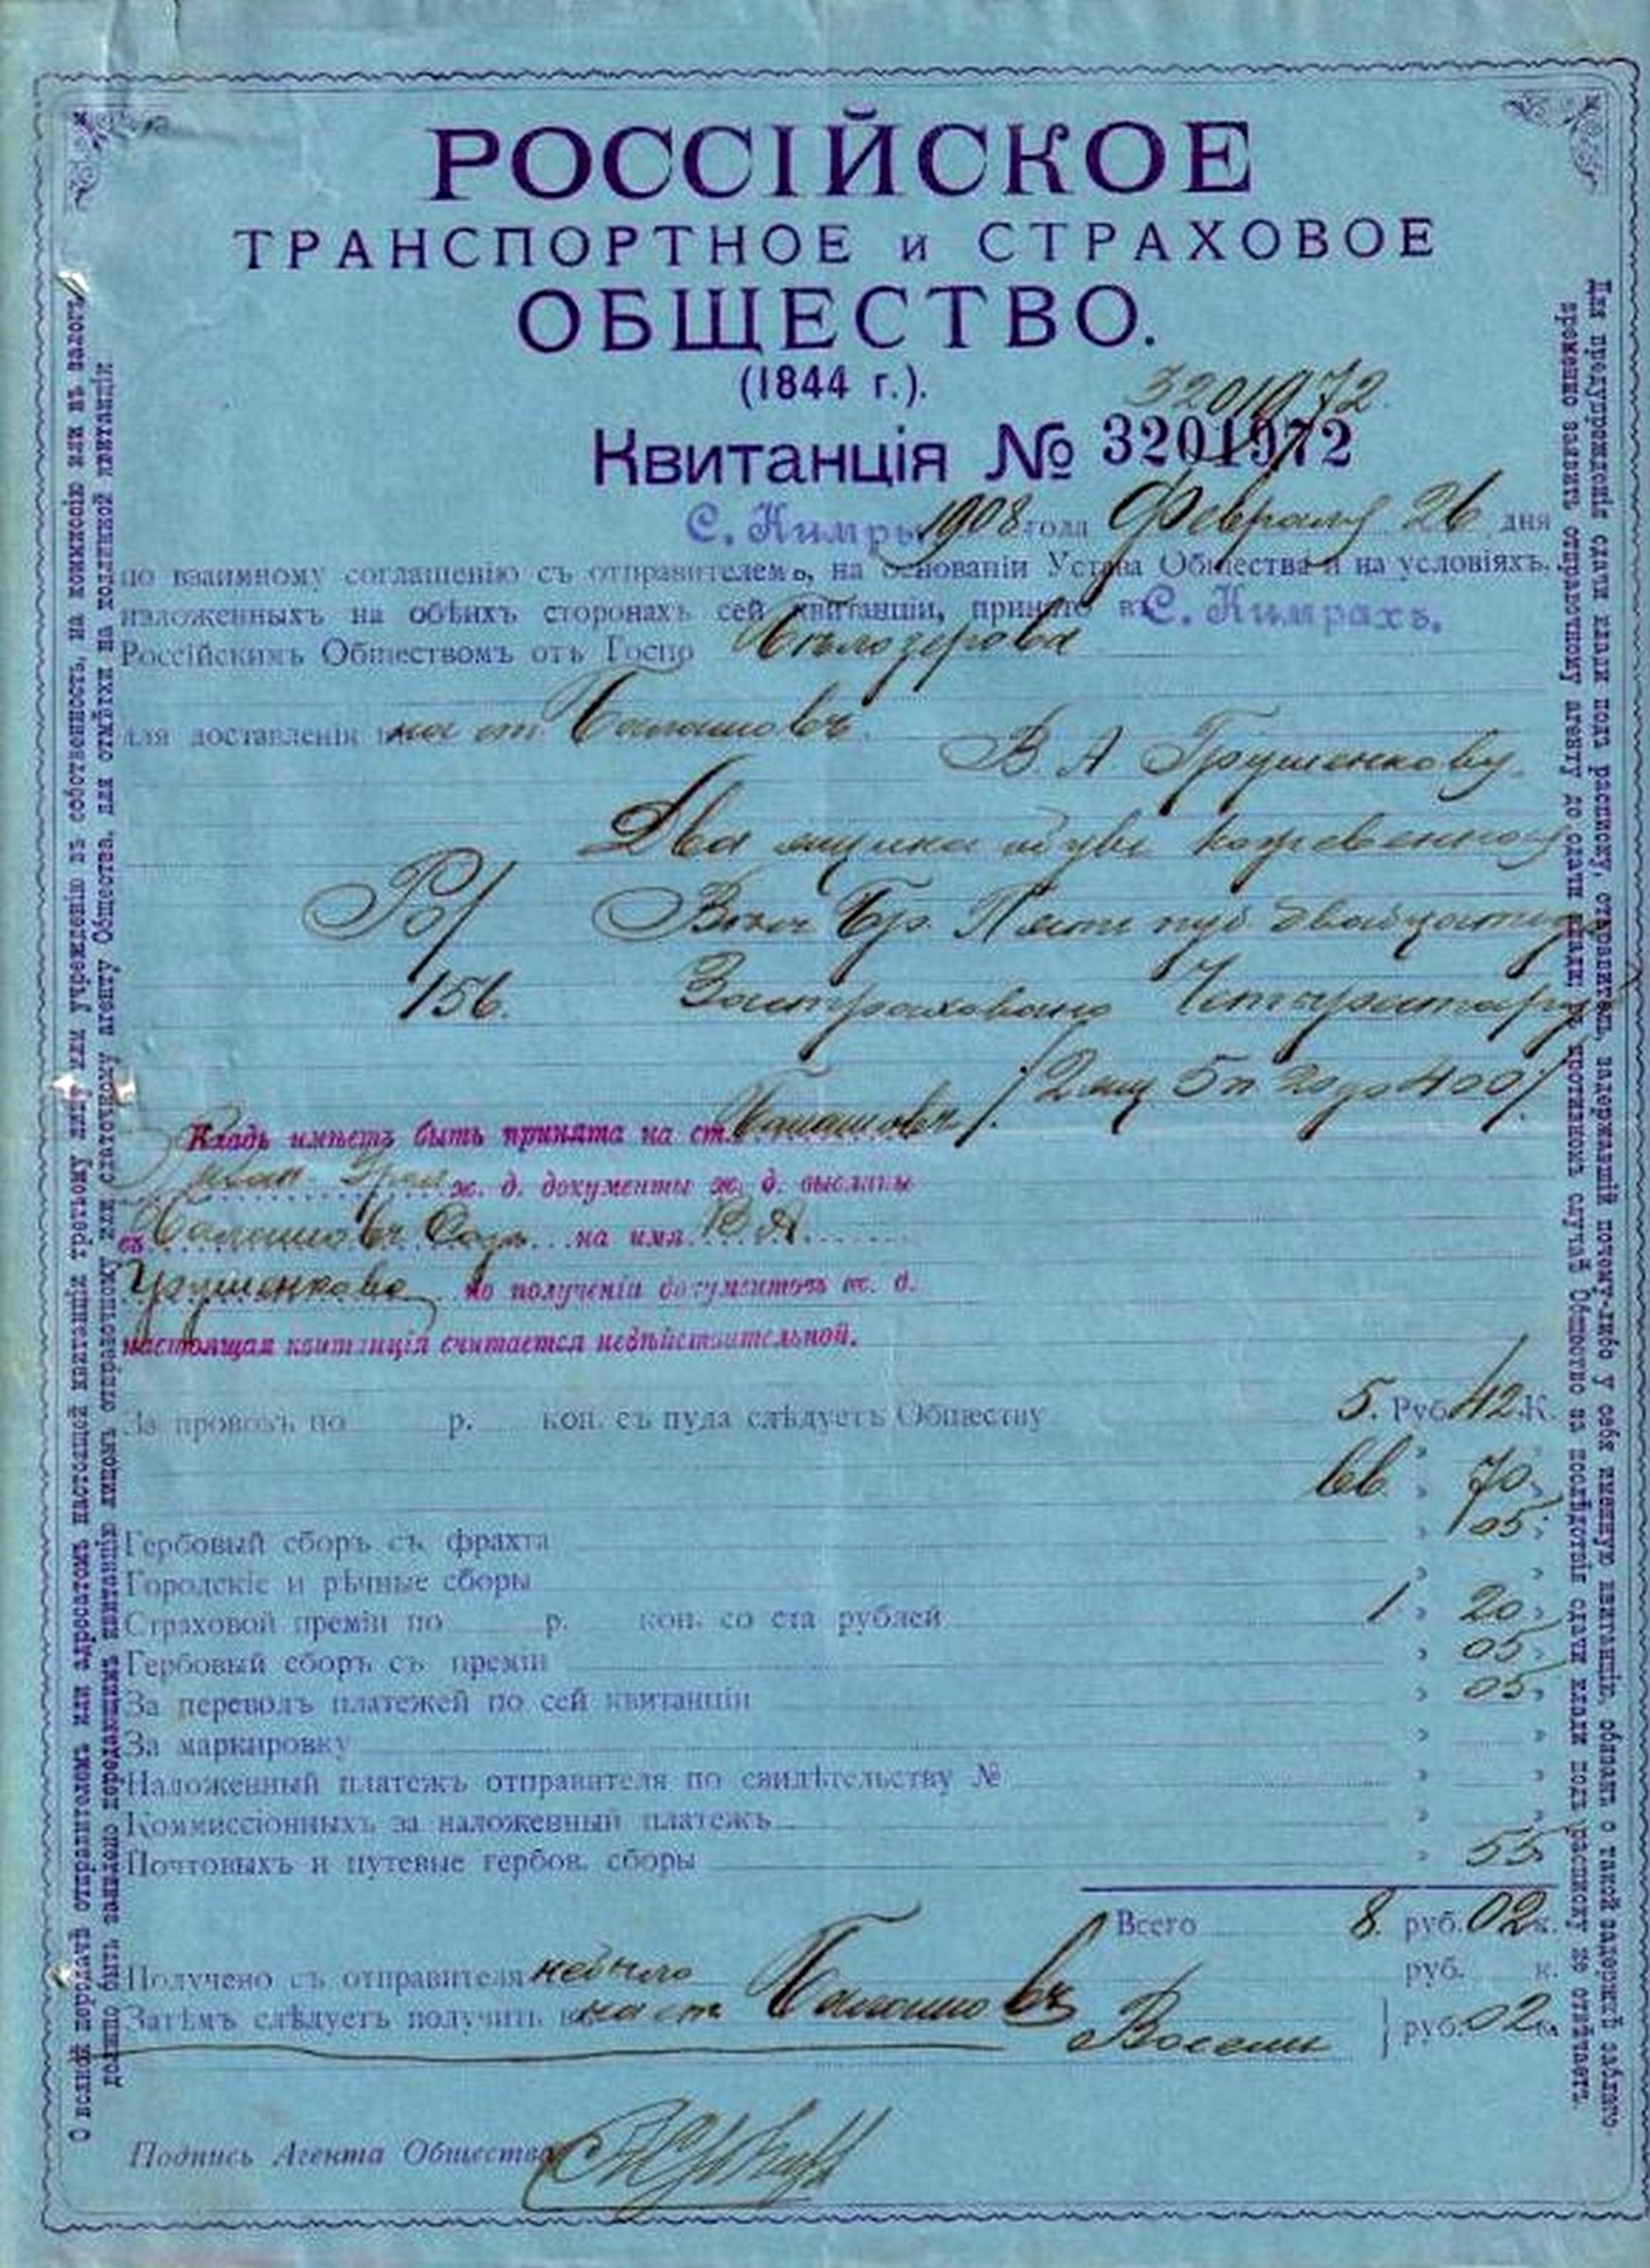 РОССІЙСКОЕ
ТРАНСПОРТНОЕ и СТРАХОВОЕ
ОБЩЕСТВО.
(1844 г.).
3201972
Квитанція № 3201972
С. Кимры 1908 года Февраля 26 дня
по взаимному соглашенію съ отправителемъ, на основаніи Устава Общества и на условіяхъ,
изложенныхъ на обѣихъ сторонахъ сей квитанціи, принято въ С. Кимрахъ.
Россійскимъ Обществомъ отъ Госпо
для доставленія на ст Балашовъ
В. А Грушенкову
Два ящика обуви кожевенной
Ро/ Вѣсъ Бр. Пять пуд двадцать
156. Застраховано Четыреста ру
/2 ящ 5 п 20 ф 400/
Кладь имѣетъ быть принята на ст. Балашовъ/.
ж. д. документы ж. д. высланы
въ Балашовъ на имя В А
Грушенкова по полученіи документовъ ж. д.
настоящая квитанція считается недѣйствительной.
За провозъ по р. коп. съ пуда слѣдуетъ Обществу 5. Руб. 42 К.
70
Гербовый сборъ съ фрахта 05
Городскіе и рѣчные сборы
Страховой преміи по р. коп. со ста рублей 1 20
Гербовый сборъ съ преміи 05
За переводъ платежей по сей квитанціи 05
За маркировку
Наложенный платежъ отправителя по свидѣтельству №
Коммиссіонныхъ за наложенный платежъ
Почтовыхъ и путевые гербов. сборы 55
Всего 8 руб. 02 к.
Получено съ отправителя небыло руб. к.
Затѣмъ слѣдуетъ получить на ст Балашовъ Восемь руб. 02 к.
Подпись Агента Общества
О всякой передачѣ отправителемъ или адресатомъ настоящей квитанціи третьему лицу или учрежденію въ собственность, на коммисію или въ залогъ
должно быть заявлено передающимъ квитанцію лицомъ отправочному или сдаточному агенту Общества, для отмѣтки на подлинной квитанціи
Для предупрежденія сдачи клади подъ расписку, отправитель, задержавшій почему-либо у себя именную квитанцію, обязанъ о такой задержкѣ заблаго-
временно заявить отправочному агенту до сдачи клади; въ противномъ случаѣ Общество за послѣдствія сдачи клади подъ расписку не отвѣчаетъ.